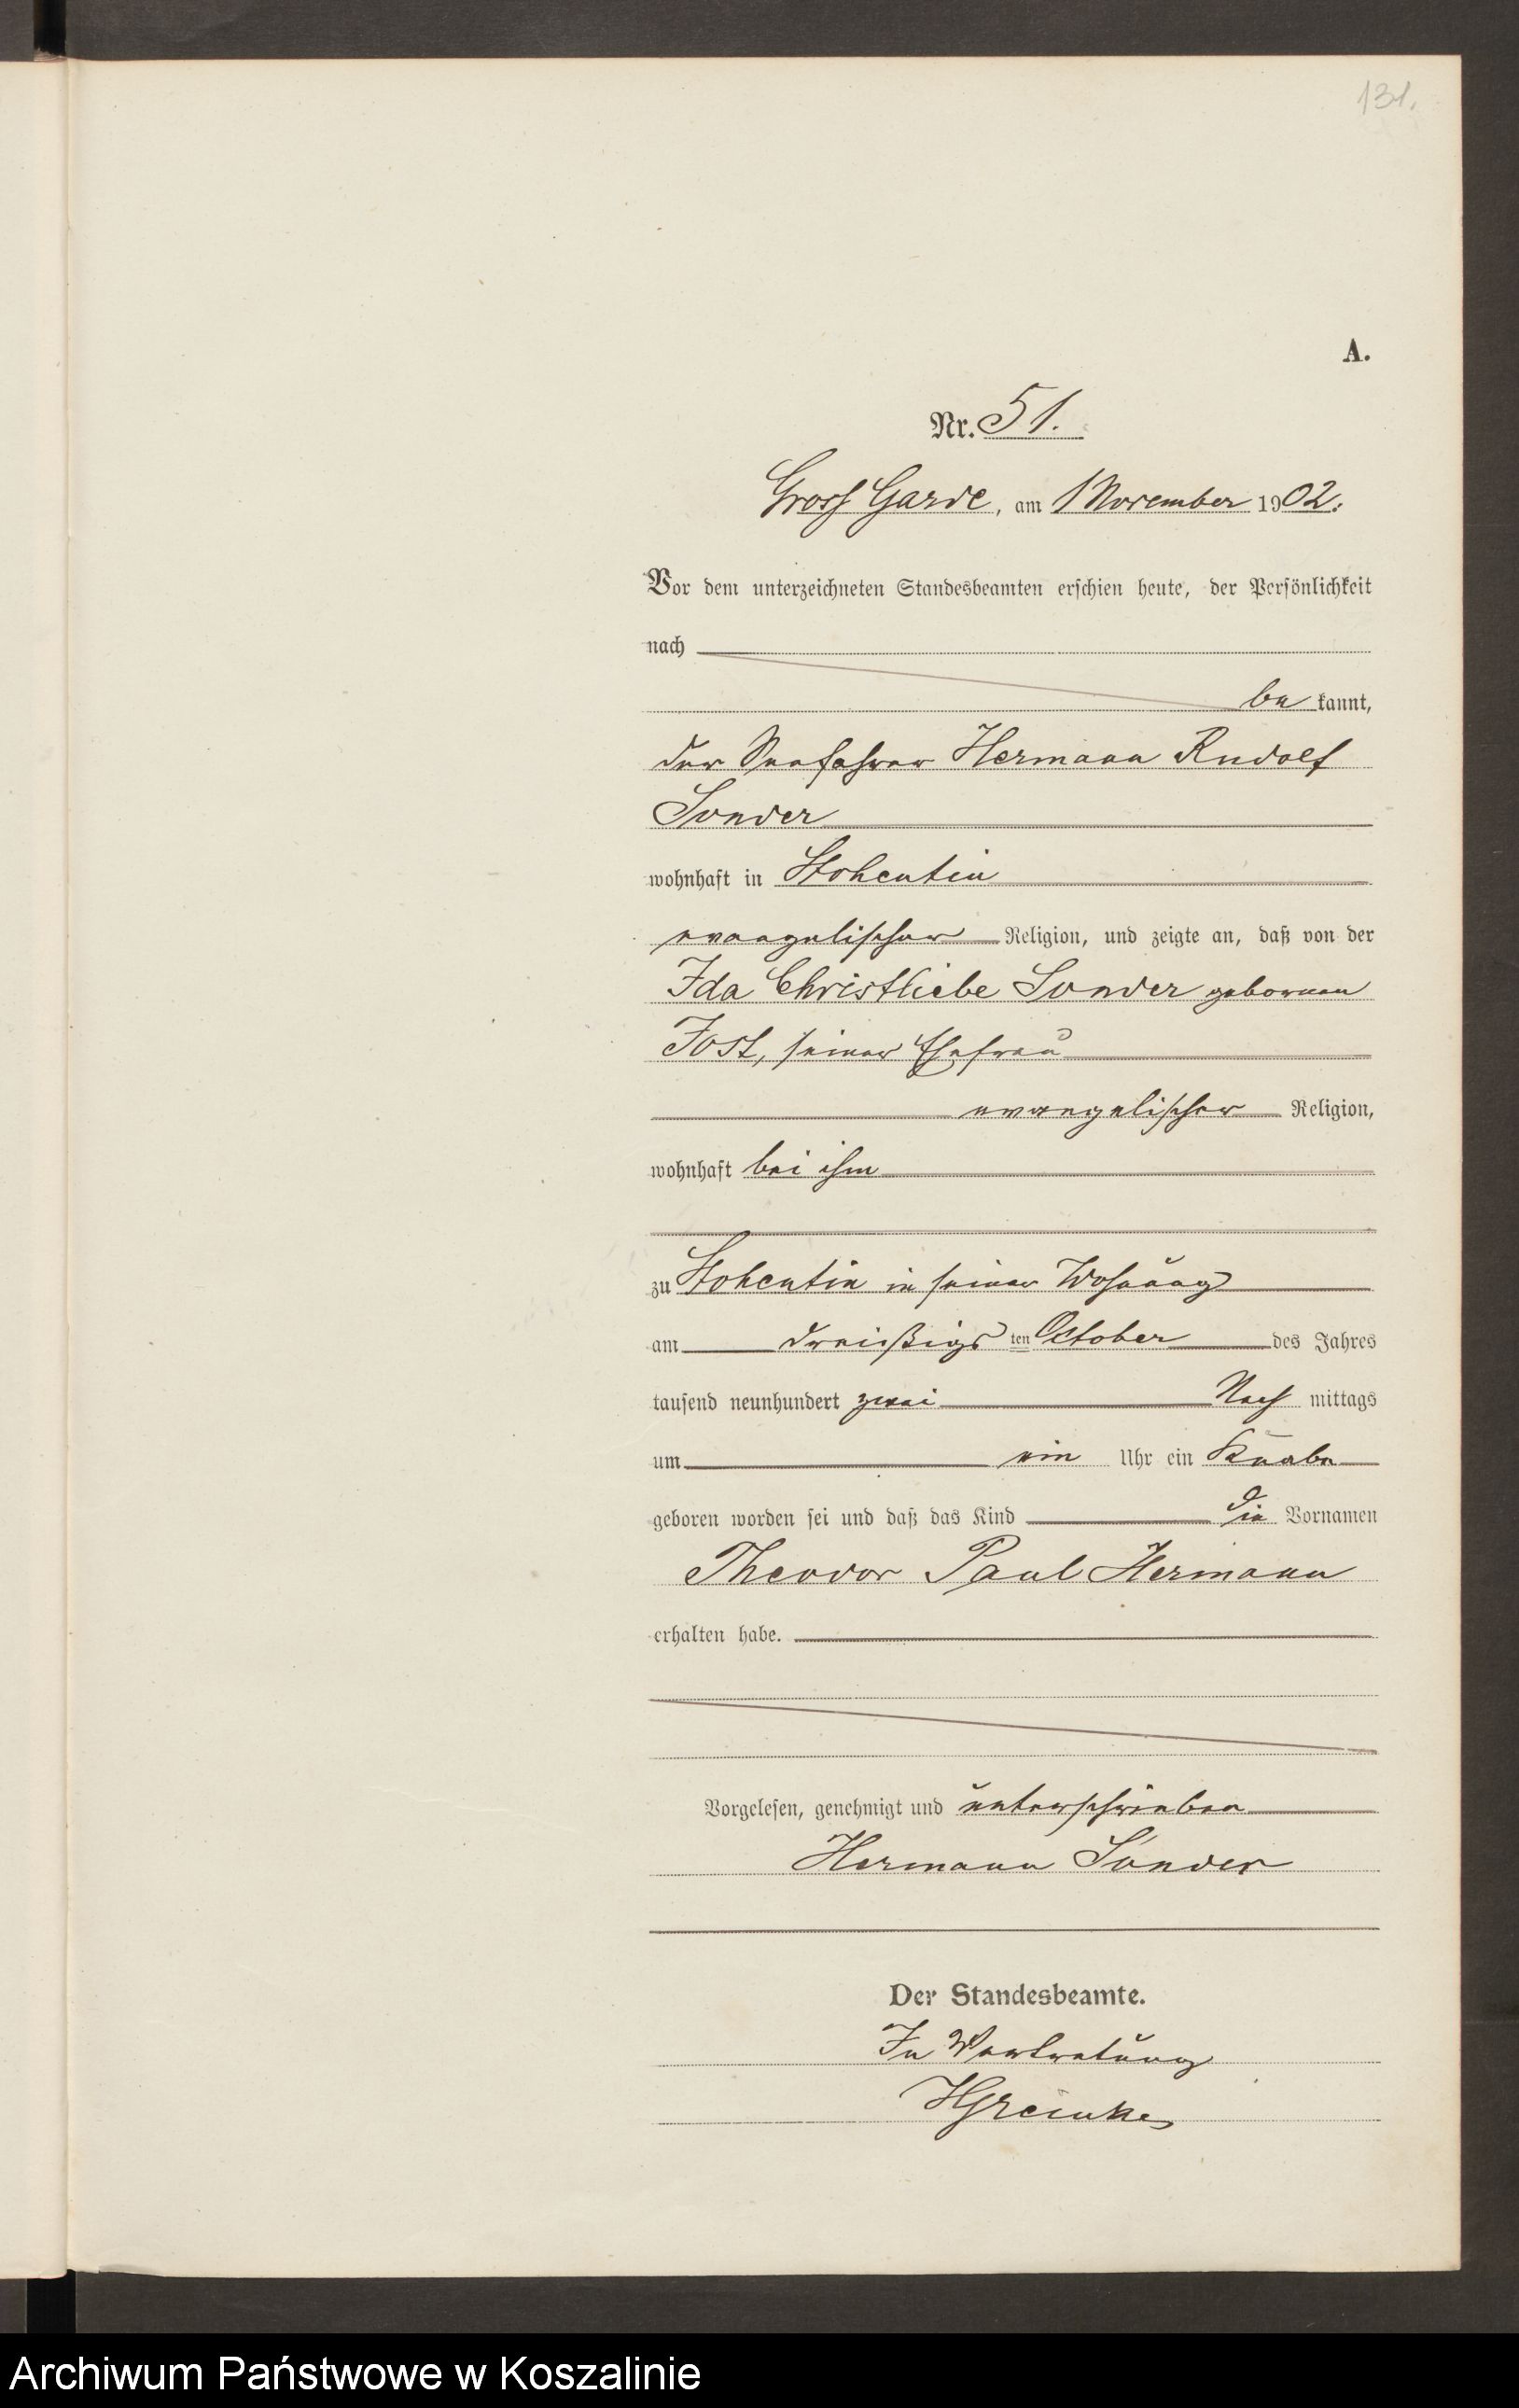 131.
A.
Nr. 51.
Gross Garde, am 1 November 1902.
Vor dem unterzeichneten Standesbeamten erschien heute, der Persönlichkeit
nach
be kannt,
der Seefahrer Hermann Rudolf
Sonder
wohnhaft in Stohentin
evangelischer Religion, und zeigte an, daß von der
Ida Christliebe Sonder geborenen
Jost, seiner Ehefrau
evangelischer Religion,
wohnhaft bei ihm
zu Stohentin in seiner Wohnung
am dreißigs ten October des Jahres
tausend neunhundert zwei Nach mittags
um ein Uhr ein Knabe
geboren worden sei und daß das Kind die Vornamen
Theodor Paul Hermann
erhalten habe.
Vorgelesen, genehmigt und unterschrieben
Hermann Sonder
Der Standesbeamte.
In Vertretung
HGreinke
Archiwum Państwowe w Koszalinie